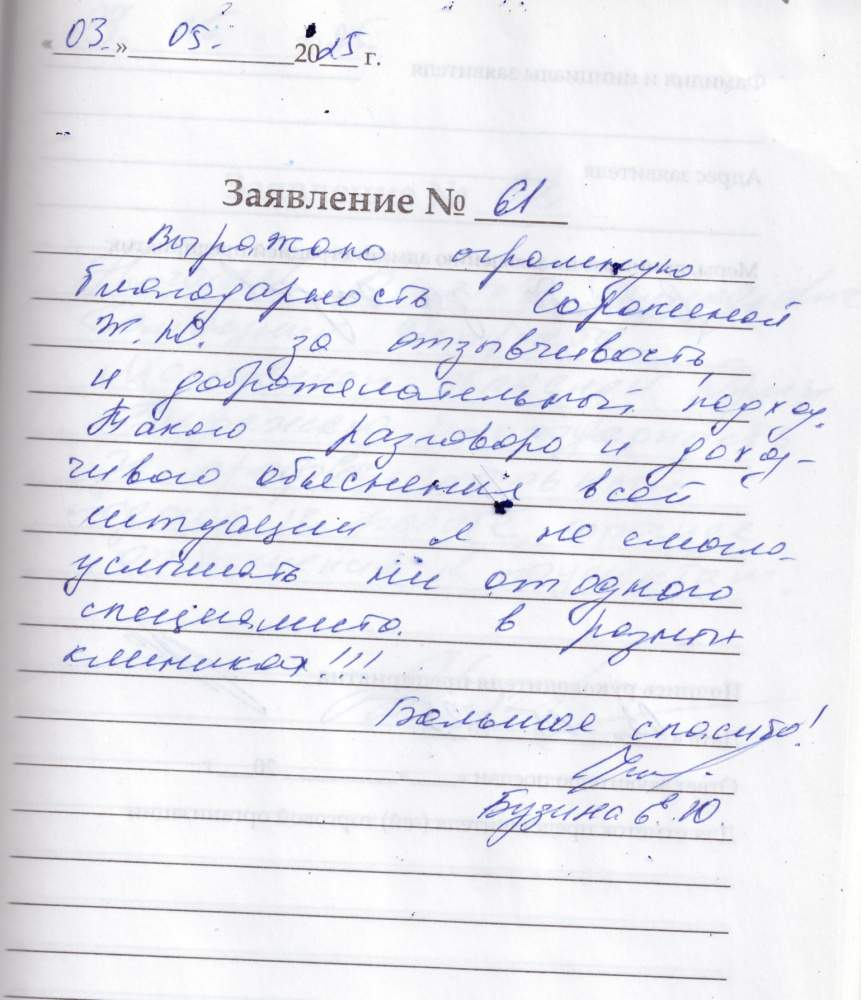 « 03. » 05. 2025 г.
Заявление № 61
Выражаю огромную
благодарность Сорокиной
Ж.Ю. за отзывчивость
и доброжелательный подход.
Такого разговора и доход-
чивого объяснения всей
ситуации я не смогла
услышать ни от одного
специалиста в разных
клиниках!!!
Большое спасибо!
Бузина Е.Ю.